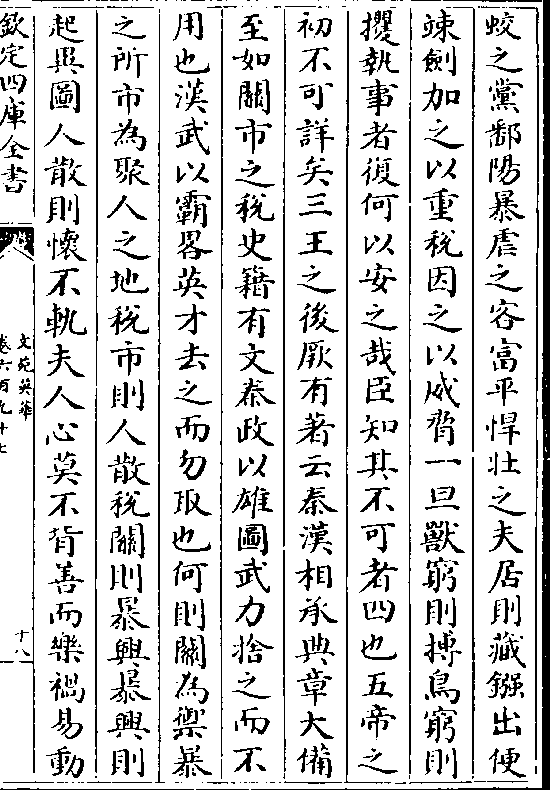 蛟之黨鄱陽暴虐之客富平悍壯之夫居則藏鏹出便
竦劍加之以重稅因之以威脅一旦獸窮則搏鳥窮則
攫執事者復何以安之哉臣知其不可者四也五帝之
初不可詳矣三王之後厥有著云秦漢相承典章大備
至如關市之稅史籍有文秦政以雄圖武力捨之而不
用也漢武以霸畧英才去之而勿取也何則關為禦暴
之所市為聚人之地稅市則人散稅關則暴興暴興則
起異圖人散則懷不軌夫人心莫不背善而樂禍易動
欽定四庫全書
文苑英華
卷六百九十七
十八